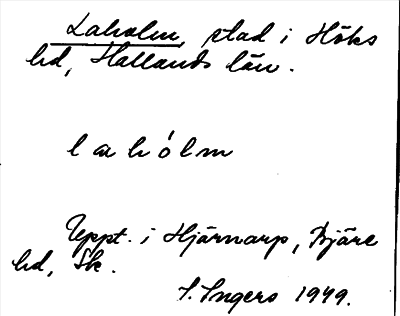 Laholm, stad i Höks
hd, Hallands län.
lahólm
Uppt. i Hjärnarp, Bjäre
hd, Sk.
S. Ingers 1949.